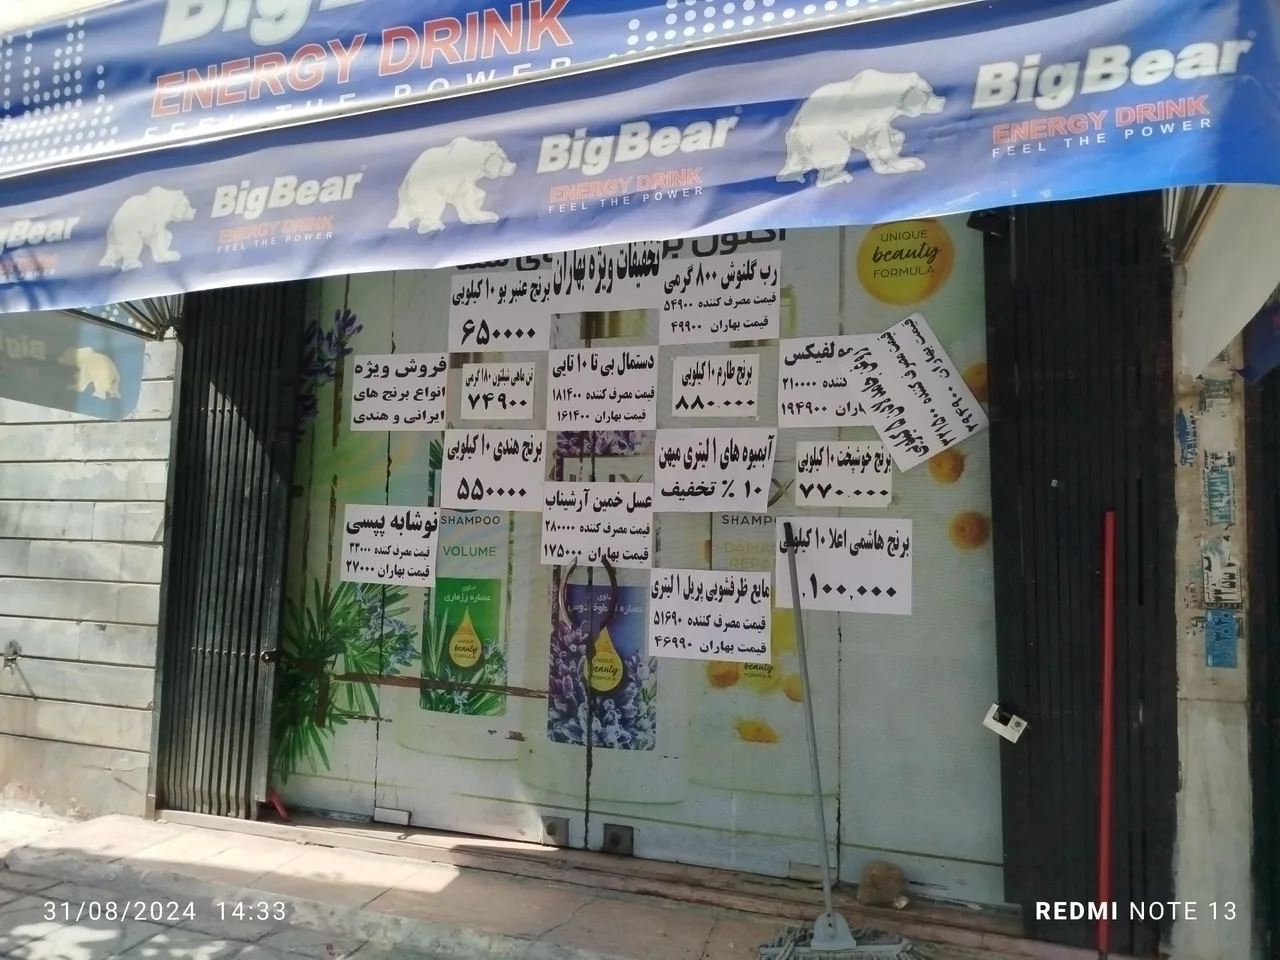 BigBear
ENERGY DRINK
FEEL THE POWER
BigBear
ENERGY DRINK
FEEL THE POWER
BigBear
ENERGY DRINK
FEEL THE POWER
BigBear
ENERGY DRINK
FEEL THE POWER
BigBear
UNIQUE
beauty
FORMULA
اکنون
تخفیفات ویژه بهاران
رب گلنوش ۸۰۰ گرمی
قیمت مصرف کننده ۵۴۹۰۰
قیمت بهاران ۴۹۹۰۰
برنج عنبر بو ۱۰ کیلویی
۶۵۰۰۰۰
فروش ویژه
انواع برنج های
ایرانی و هندی
تن ماهی شیلتون ۱۸۰ گرمی
۷۴۹۰۰
دستمال بی تا ۱۰ تایی
قیمت مصرف کننده ۱۸۱۴۰۰
قیمت بهاران ۱۶۱۴۰۰
برنج طارم ۱۰ کیلویی
۸۸۰.۰۰۰
ولفیکس
ننده ۲۱۰۰۰۰
اران ۱۹۴۹۰۰
برنج هندی ۱۰ کیلویی
۵۵۰۰۰۰
آبمیوه های ۱ لیتری میهن
۱۰ % تخفیف
برنج خوشبخت ۱۰ کیلویی
۷۷۰.۰۰۰
نوشابه پپسی
قیمت مصرف کننده ۳۳۰۰۰
قیمت بهاران ۲۷۰۰۰
عسل خمین آرشیناب
قیمت مصرف کننده ۲۸۰۰۰۰
قیمت بهاران ۱۷۵۰۰۰
برنج هاشمی اعلا ۱۰ کیلویی
۱۰۰,۰۰۰
مایع ظرفشویی پریل ۱ لیتری
قیمت مصرف کننده ۵۱۶۹۰
قیمت بهاران ۴۶۹۹۰
SHAMPOO
VOLUME
حاوی
عصاره رزماری
UNIQUE
beauty
FORMULA
حاوی
عصاره
UNIQUE
beauty
FORMULA
SHAMP
beauty
FORMULA
31/08/2024 14:33
REDMI NOTE 13